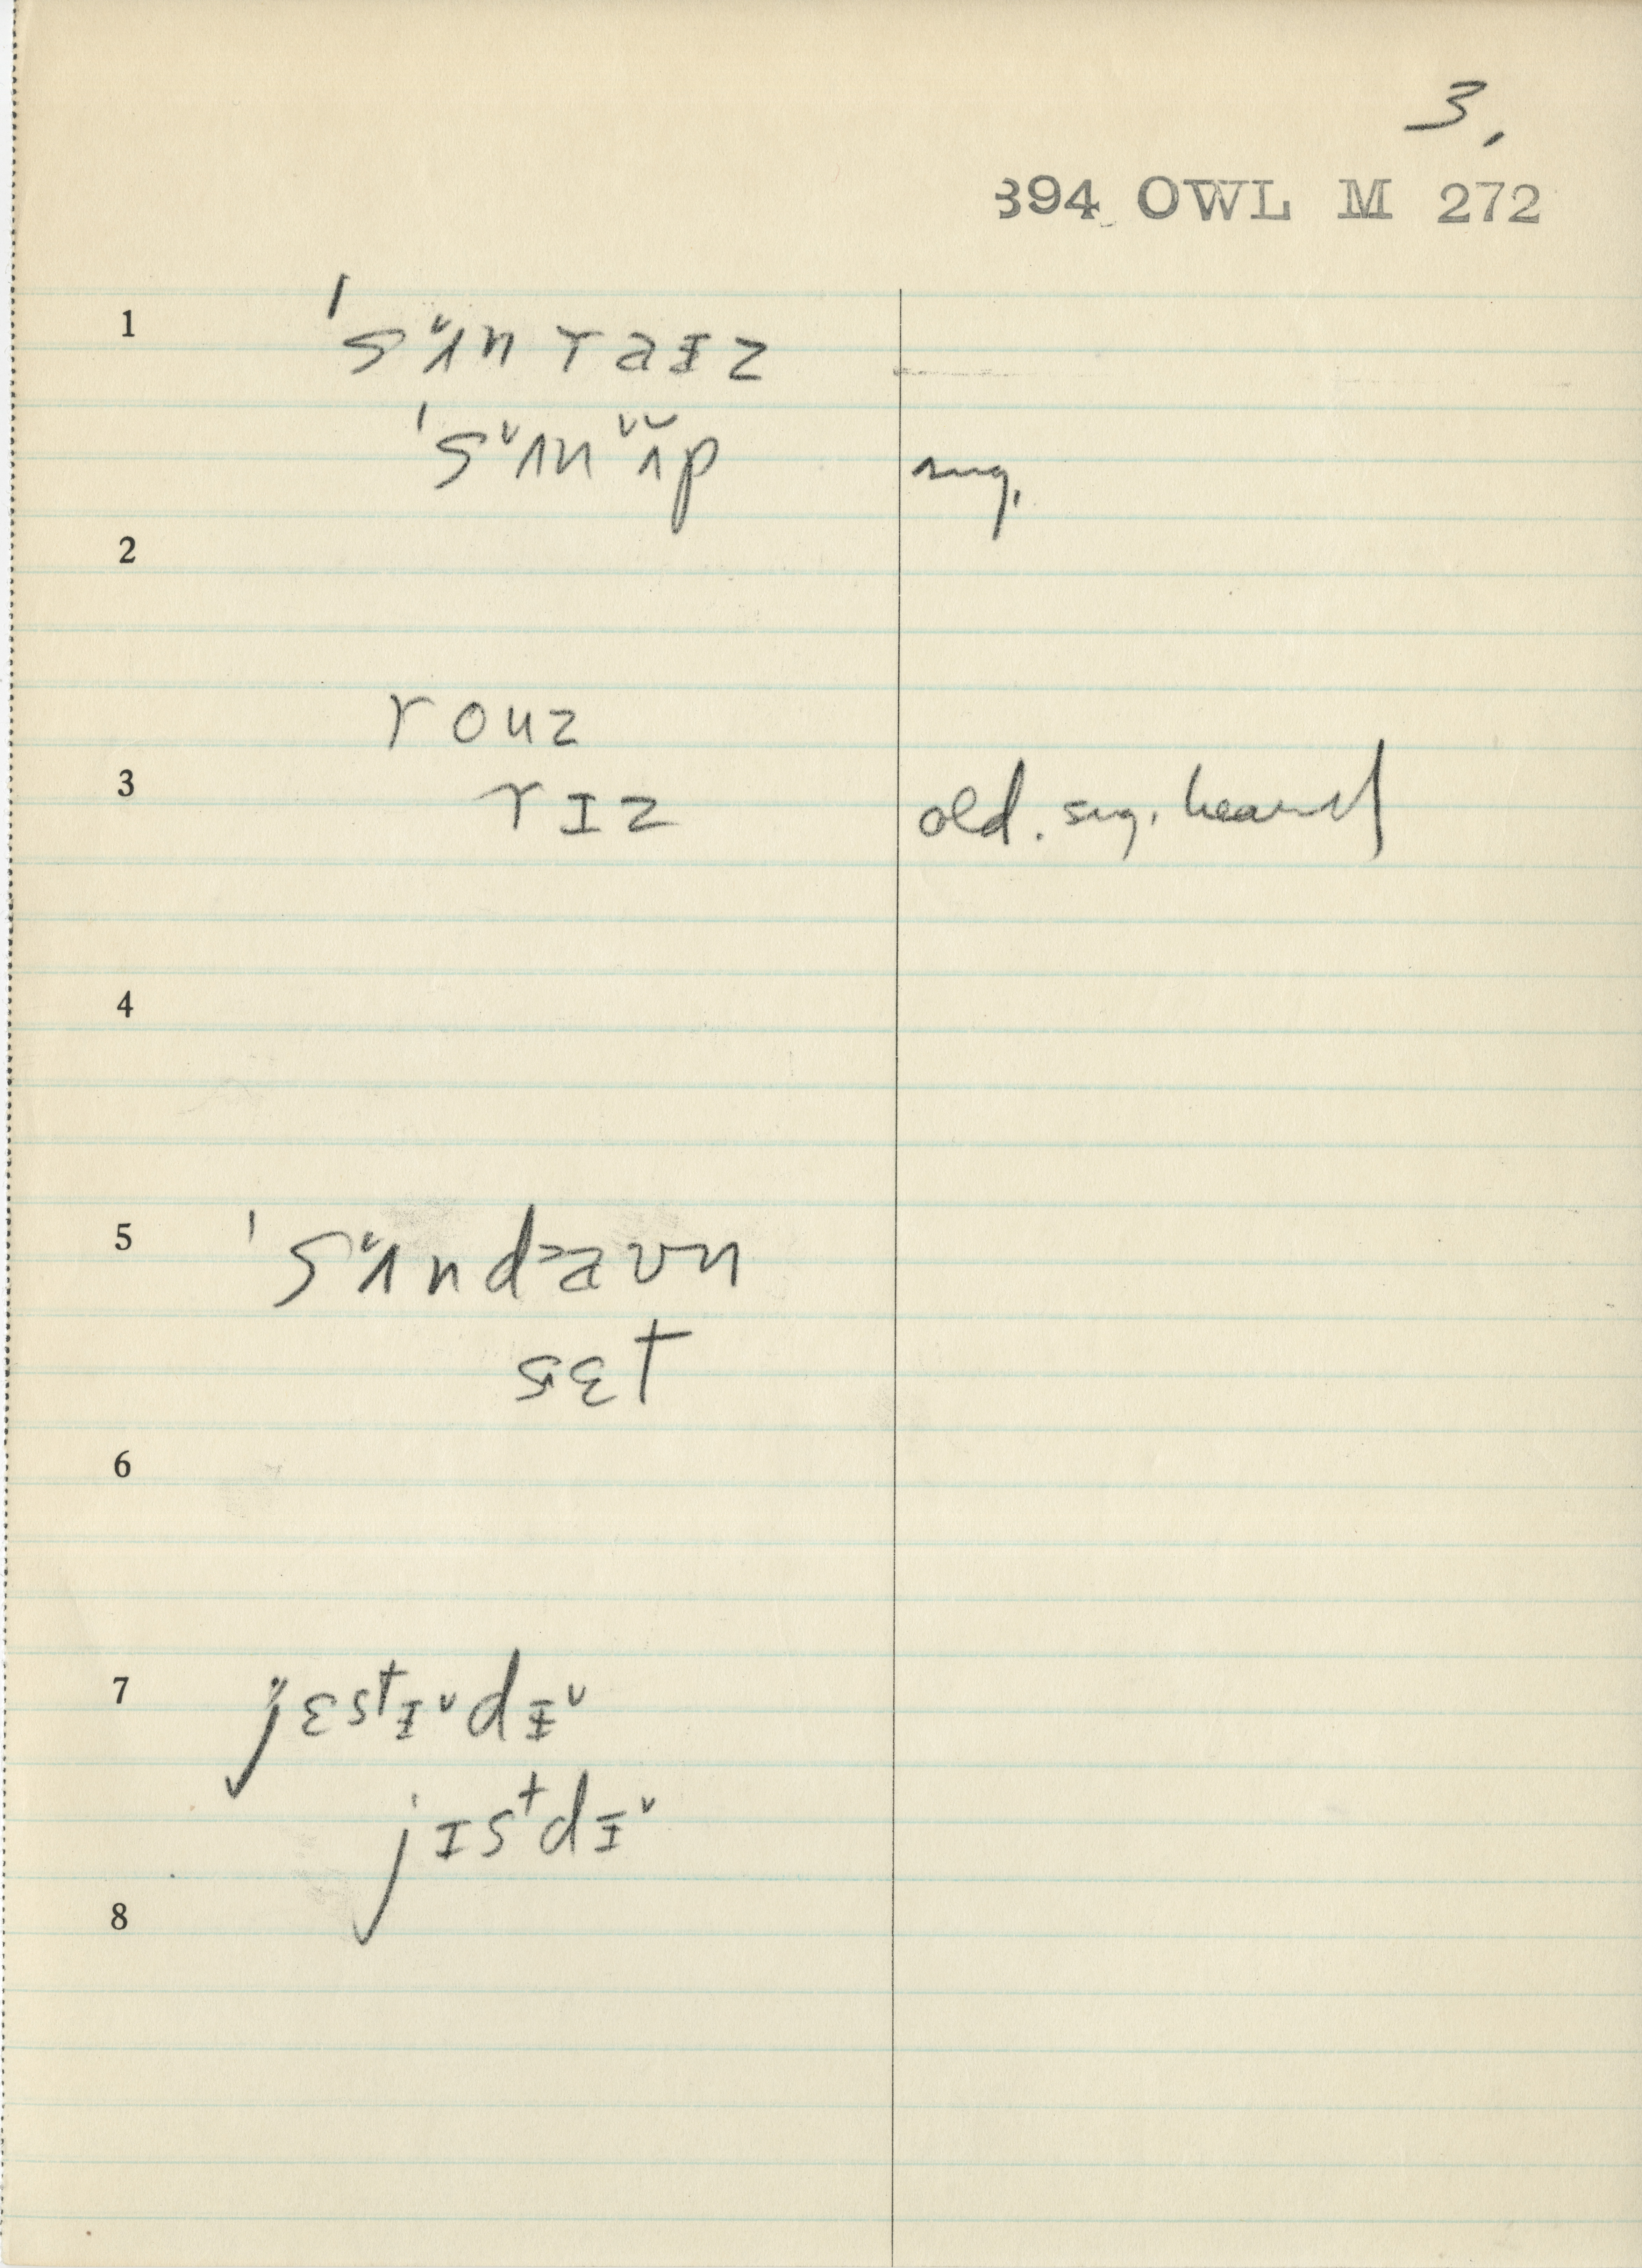 3.
394 OWL M 272
1 ˈsʌ˅n raɨz
ˈsʌ˅n ʌ˅p sug.
2
rouz
3 rɪz old. sug. heard
4
5 ˈsʌ˅ndaʊn
sɛt
6
7 jɛstɨ˅dɨ˅
jɪstdɨ˅
8